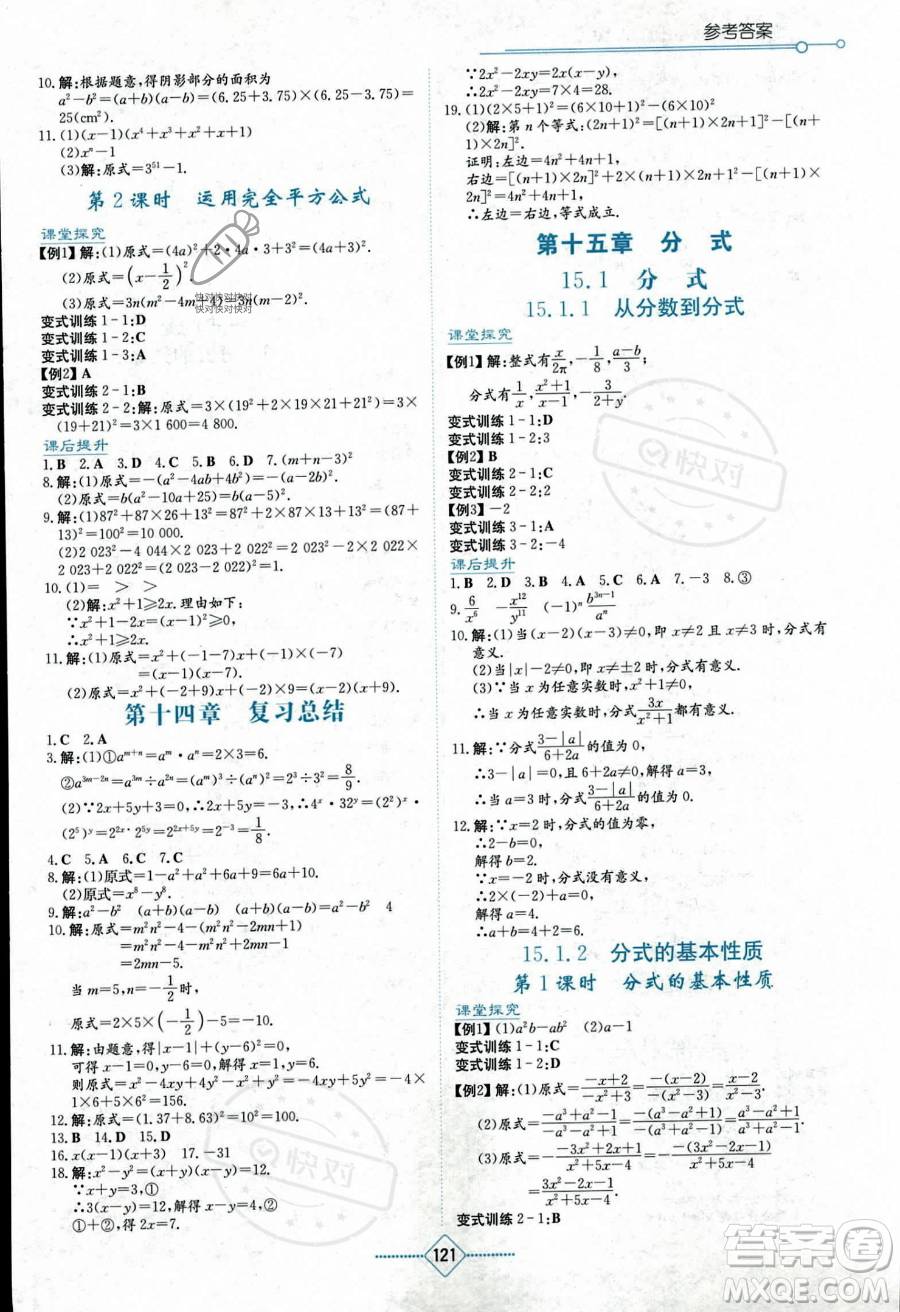 参考答案
10. 解:根据题意,得阴影部分的面积为
a²-b²=(a+b)(a-b)=(6.25+3.75)×(6.25-3.75)=
25(cm²).
11. (1)(x-1)(x⁴+x³+x²+x+1)
(2)xⁿ-1
(3)解:原式=3⁵¹-1.
第2课时 运用完全平方公式
课堂探究
【例1】解:(1)原式=(4a)²+2·4a·3+3²=(4a+3)².
(2)原式=(x-1/2)².
(3)原式=3n(m²-4m+4)=3n(m-2)².
快对快对快对
快对快对快对
变式训练1-1:D
变式训练1-2:C
【例2】A
变式训练2-1:B
变式训练2-2:解:原式=3×(19²+2×19×21+21²)=3×
(19+21)²=3×1 600=4 800.
课后提升
1. B 2. A 3. D 4. C 5. B 6. D 7. (m+n-3)²
8. 解:(1)原式=-(4a²-4ab+b²)=-(2a-b)².
(2)原式=b(a²-2a+1)=b(a-1)².
9. 解:(1)87²+87×26+13²=87²+2×87×13+13²=(87+
13)²=100²=10 000.
(2)2 023²-4 044×2 023+2 022²=2 023²-2×2 022×
2 023+2 022²=(2 023-2 022)²=1.
10. (1)= > >
(2)解:x²+1≥2x.理由如下:
∵x²+1-2x=(x-1)²≥0,
∴x²+1≥2x.
11. 解:(1)原式=x²+(-1-7)x+(-1)×(-7)
=(x-1)(x-7).
(2)原式=(a-2+9)(a-2-2)=(a+7)(a-4).
第十四章 复习总结
1. C 2. A
3. 解:(1)①aᵐ⁺ⁿ=aᵐ·aⁿ=2×3=6.
②a³ᵐ⁻²ⁿ=a³ᵐ÷a²ⁿ=(aᵐ)³÷(aⁿ)²=2³÷3²=8/9.
(2)∵2x+5y+3=0,∴2x+5y=-3,∴4ˣ·32ʸ=(2²)ˣ·
(2⁵)ʸ=2²ˣ·2⁵ʸ=2²ˣ⁺⁵ʸ=2⁻³=1/8.
4. C 5. A 6. C 7. C
8. 解:(1)原式=-1-a²+a²+6a+9=6a+8.
(2)原式=x⁸-y⁸.
9. 解:a²-b² (a+b)(a-b) (a+b)(a-b)=a²-b² 4
10. 解:原式=m²n²-4-(m²n²-2mn+1)
=m²n²-4-m²n²+2mn-1
=2mn-5.
当m=5,n=-1/2时,
原式=2×5×(-1/2)-5=-10.
11. 解:由题意,得|x-1|+(y-6)²=0,
可得x-1=0,y-6=0,解得x=1,y=6.
则原式=x²-4xy+4y²-x²+4xy-4x+4y²=-4x+8y²=-4×
1×6+5×6²=156.
12. 解:原式=(1.37+8.63)²=10²=100.
13. B 14. D 15. D
16. x(x-3)(x+3) 17. -31
18. 解:x²-y²=(x+y)(x-y)=12.
∵x+y=3,①
∴3(x-y)=12,解得x-y=4.②
①+②,得2x=7.
∵2x²-2xy=2x(x-y),
∴2x²-2xy=7×4=28.
19. (1)(2×5+1)²=(6×10+1)²-(6×10)²
(2)解:第n个等式:(2n+1)²=[(n+1)×2n+1]²-[(n+
1)×2n]².
证明:左边=4n²+4n+1,
右边=[(n+1)×2n]²+2×(n+1)×2n+1²-[(n+1)×
2n]²=4n²+4n+1,
∴左边=右边,等式成立.
第十五章 分 式
15.1 分 式
15.1.1 从分数到分式
课堂探究
【例1】解:整式有x/2π,-1/8,a/3;
分式有1/x,(x²+1)/(x-1),-3/(2+y).
变式训练1-1:D
变式训练1-2:3
【例2】B
变式训练2-1:C
变式训练2-2:2
【例3】-2
变式训练3-1:A
变式训练3-2:-4
课后提升
1. B 2. D 3. B 4. D 5. A 6. A 7. -3 8. ③
9. 6/x⁶ -x¹²/y¹¹ (-1)ⁿ b³ⁿ⁻¹/aⁿ
10. 解:(1)当(x-2)(x-3)≠0,即x≠2且x≠3时,分式有
意义.
(2)当|x|-2≠0,即x≠±2时,分式有意义.
∴当x为任意实数时,x²+1≠0,
∴当x为任意实数时,分式3x/(x²+1)都有意义.
11. 解:∵分式(3-|a|)/(6+2a)的值为0,
∴3-|a|=0且6+2a≠0,解得a=3,
∴当a=3时,分式(3-|a|)/(6+2a)的值为0.
12. 解:∵x=2时,分式的值为零,
∴2-b=0,
解得b=2.
∵x=-2时,分式没有意义,
∴2×(-2)+a=0,
解得a=4.
∴a+b=4+2=6.
15.1.2 分式的基本性质
第1课时 分式的基本性质
课堂探究
【例1】(1)a²b-ab² (2)a-1
变式训练1-1:C
变式训练1-2:D
【例2】解:(1)原式=(-x+2)/(-x²+3)=-(x-2)/-(x²-3)=(x-2)/(x²-3).
(2)原式=(-a³+a²+1)/(-a²-a+1)=-(a³-a²-1)/-(a²+a-1)=(a³-a²-1)/(a²+a-1).
(3)原式=-(-3x²+2x+1)/(x²+5x-4)=-(-(3x²-2x-1))/(x²+5x-4)
=(3x²-2x-1)/(x²+5x-4).
变式训练2-1:B
121
快对
快对
答案圈
MXQE.COM